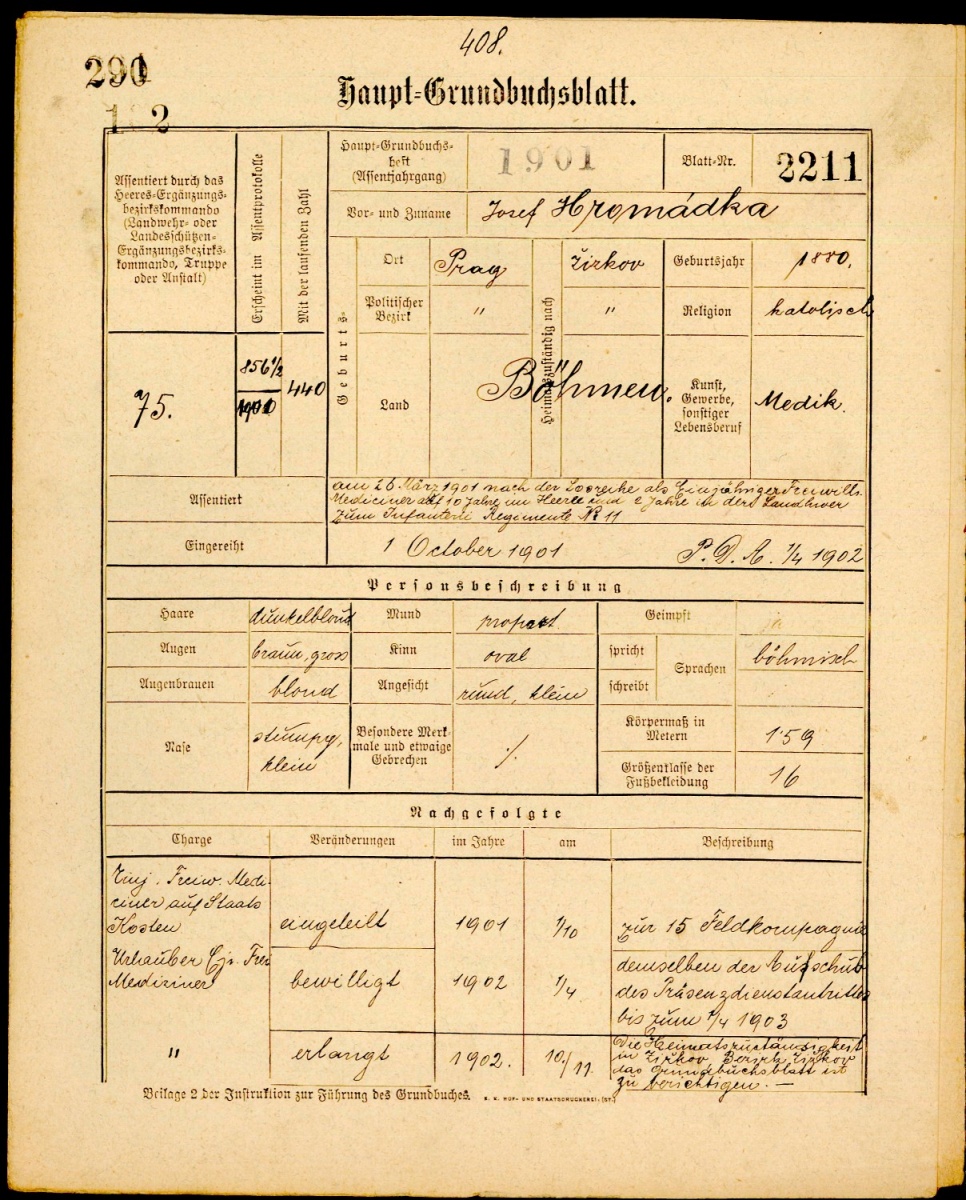 408.
290
2
Haupt-Grundbuchsblatt.
Assentiert durch das
Heeres-Ergänzungs-
bezirkskommando
(Landwehr- oder
Landesschützen-
Ergänzungsbezirks-
kommando, Truppe
oder Anstalt)
Erscheint im Assentprotokolle
Mit der laufenden Zahl
Haupt-Grundbuchs-
heft
(Assentjahrgang)
1901
Blatt-Nr.
2211
Vor- und Zuname
Josef Hromádka
Geburts-
Ort
Prag
Heimatszuständig nach
Žižkov
Geburtsjahr
1880.
Politischer
Bezirk
"
"
Religion
katolisch
75.
856 1/2
1901
440
Land
Böhmen.
Kunst,
Gewerbe,
sonstiger
Lebensberuf
Medik.
Assentiert
am 26 März 1901 nach der Losreihe als Einjähriger Freiwill.
Mediciner auf 10 Jahre im Heere und 2 Jahre in der Landwer
zum Infanterie Regimente № 11
Eingereiht
1 October 1901
P. D. A. 1/4 1902
Personsbeschreibung
Haare
dunkelblond
Mund
Geimpft
ja
Augen
braun, gross
Kinn
oval
spricht
schreibt
Sprachen
böhmisch
Augenbrauen
blond
Angesicht
rund, klein
Nase
stumpf,
klein
Besondere Merk-
male und etwaige
Gebrechen
/.
Körpermaß in
Metern
1·59
Größenklasse der
Fußbekleidung
16
Nachgefolgte
Charge
Veränderungen
im Jahre
am
Beschreibung
Einj. Freiw. Medi-
ciner auf Staats
Kosten
eingeteilt
1901
1/10
zur 15 Feldkompagnie
Urlauber Ejr. Frei
Mediziner
bewilligt
1902
1/4
demselben der Aufschub
des Präsenzdienstantrittes
bis zum 1/4 1903
"
erlangt
1902.
10/11
Die Heimatszuständigkeit
in Žižkov Bezirk Žižkov
das Grundbuchsblatt ist
zu berichtigen. —
Beilage 2 der Instruktion zur Führung des Grundbuches.
K. K. HOF- UND STAATSDRUCKEREI. (ST.)